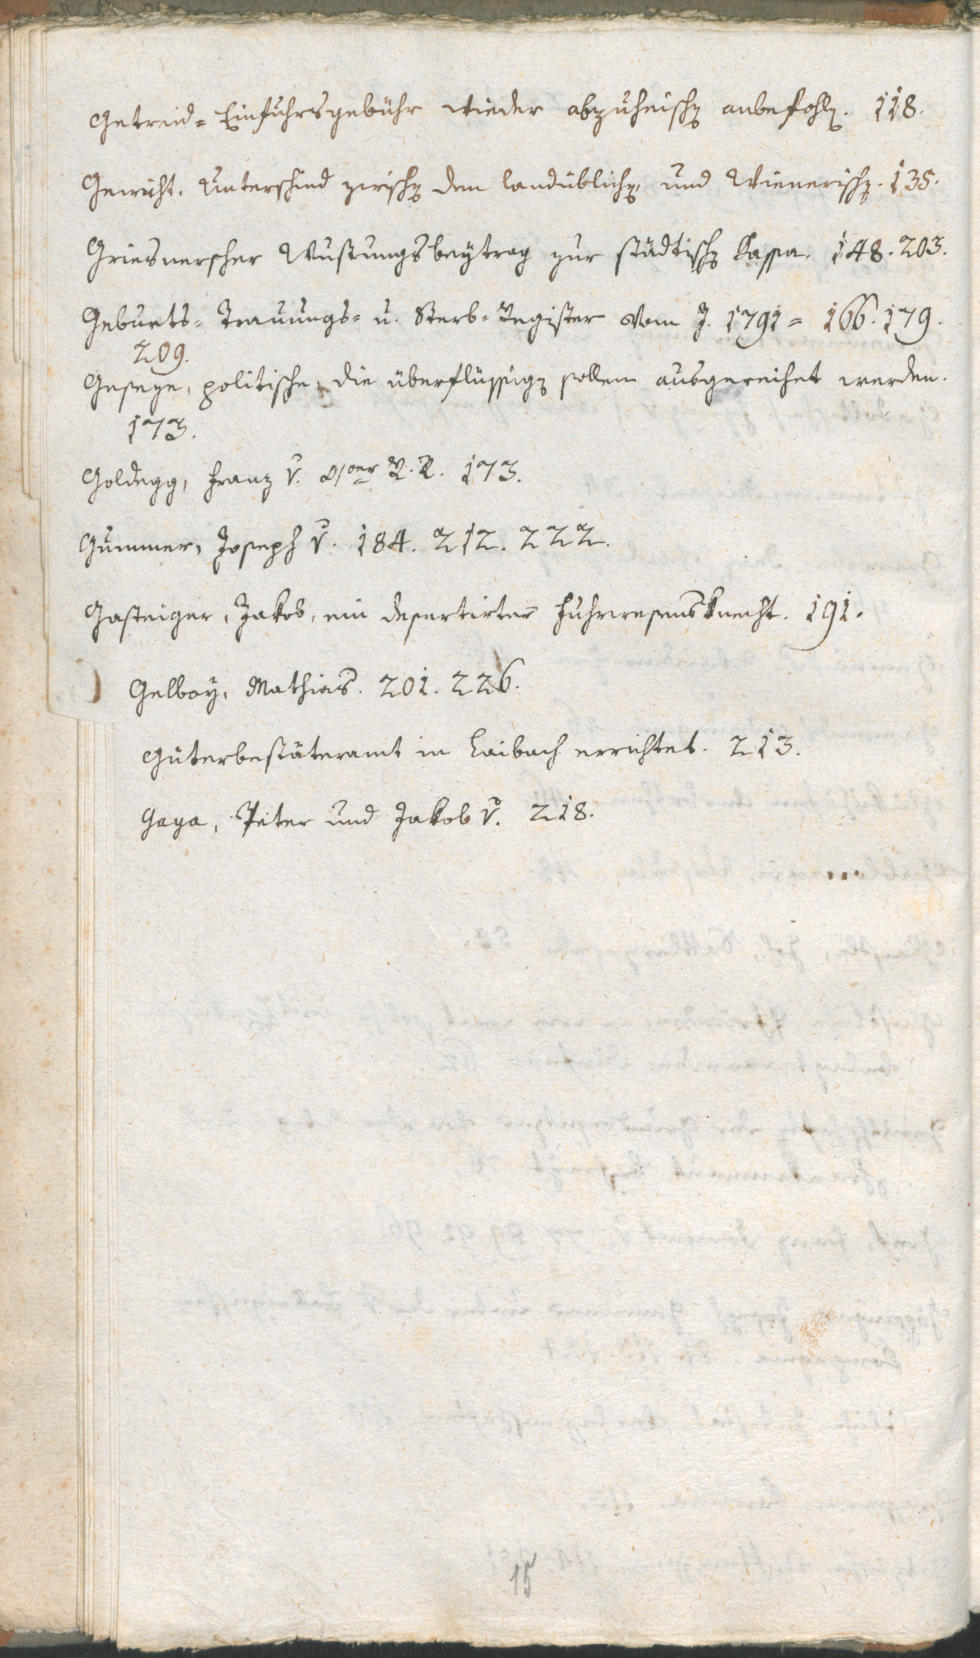 Getreid= Einfuhrsgebühr wieder abzuheischen anbefohlen. 118.
Gewicht. Unterschied zwischen dem landüblichen, und Wienerischen. 135.
Griesnerscher Wustungsbeytrag zur städtischen Kassa. 148. 203.
Geburts= Trauungs= u. Sterb= Register vom J. 1791 = 166. 179.
209.
Geseze, politische, die überflüssigen sollen ausgereihet werden.
173.
Goldegg, Franz v. 173.
Gummer, Joseph v. 184. 212. 222.
Gasteiger, Jakob, ein desertirter Fuhrwesensknecht. 191.
Gelboy, Mathias. 201. 226.
Güterbestäteramt in Laibach errichtet. 213.
Gaya, Peter und Jakob v. 218.
15